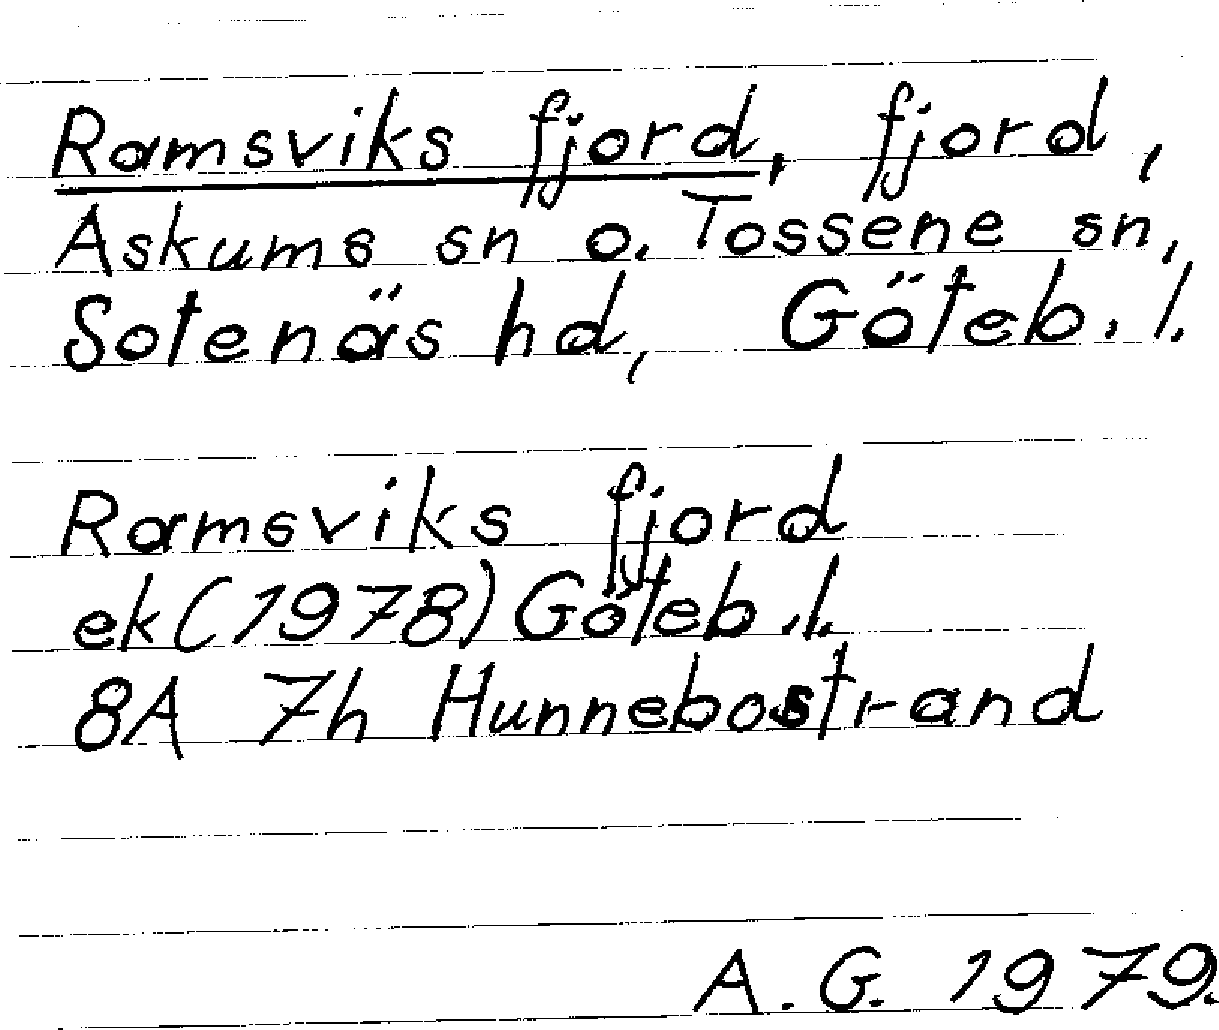 Ramsviks fjord, fjord,
Askums sn o. Tossene sn,
Sotenäs hd, Göteb. l.
Ramsviks fjord
ek (1978) Göteb. l.
8A 7h Hunnebostrand
A. G. 1979.